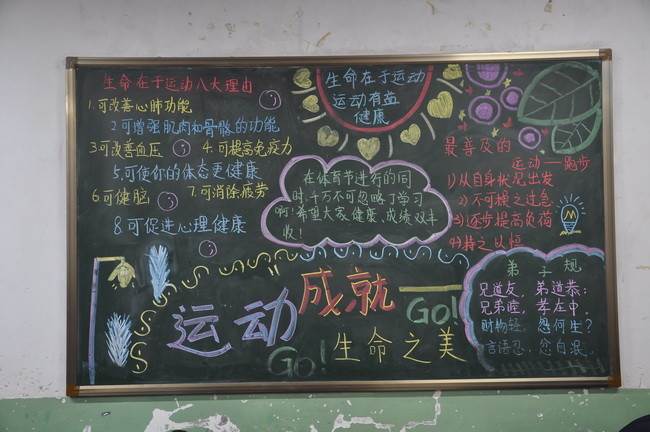 生命在于运动八大理由
1.可改善心肺功能
2可增强肌肉和骨骼的功能
3可改善血压 4.可提高免疫力
5.可使你的体态更健康
6可健脑 7.可消除疲劳
8.可促进心理健康
生命在于运动
运动有益
健康
在体育节进行的同
时,千万不可忽略了学习
啊!希望大家健康、成绩双丰
收!
最普及的
运动——跑步
1)从自身状况出发
2)不可操之过急
3)逐步提高负荷
4)持之以恒
运动
成就
GO!
GO!
生命之美
弟子规
兄道友,弟道恭;
兄弟睦,孝在中,
财物轻,怨何生?
言语忍,忿自泯。